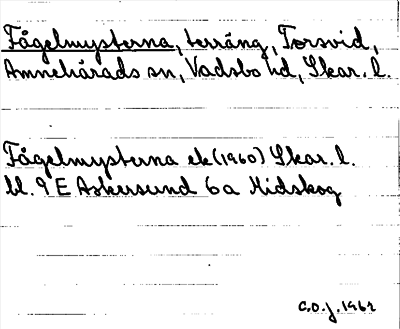 Fågelmysterna, terräng, Torsvid,
Amnehärads sn, Vadsbo hd, Skar. l.
Fågelmysterna ek (1960) Skar. l.
bl. 9 E Askersund 6 a Hidskog
C.O.J. 1962